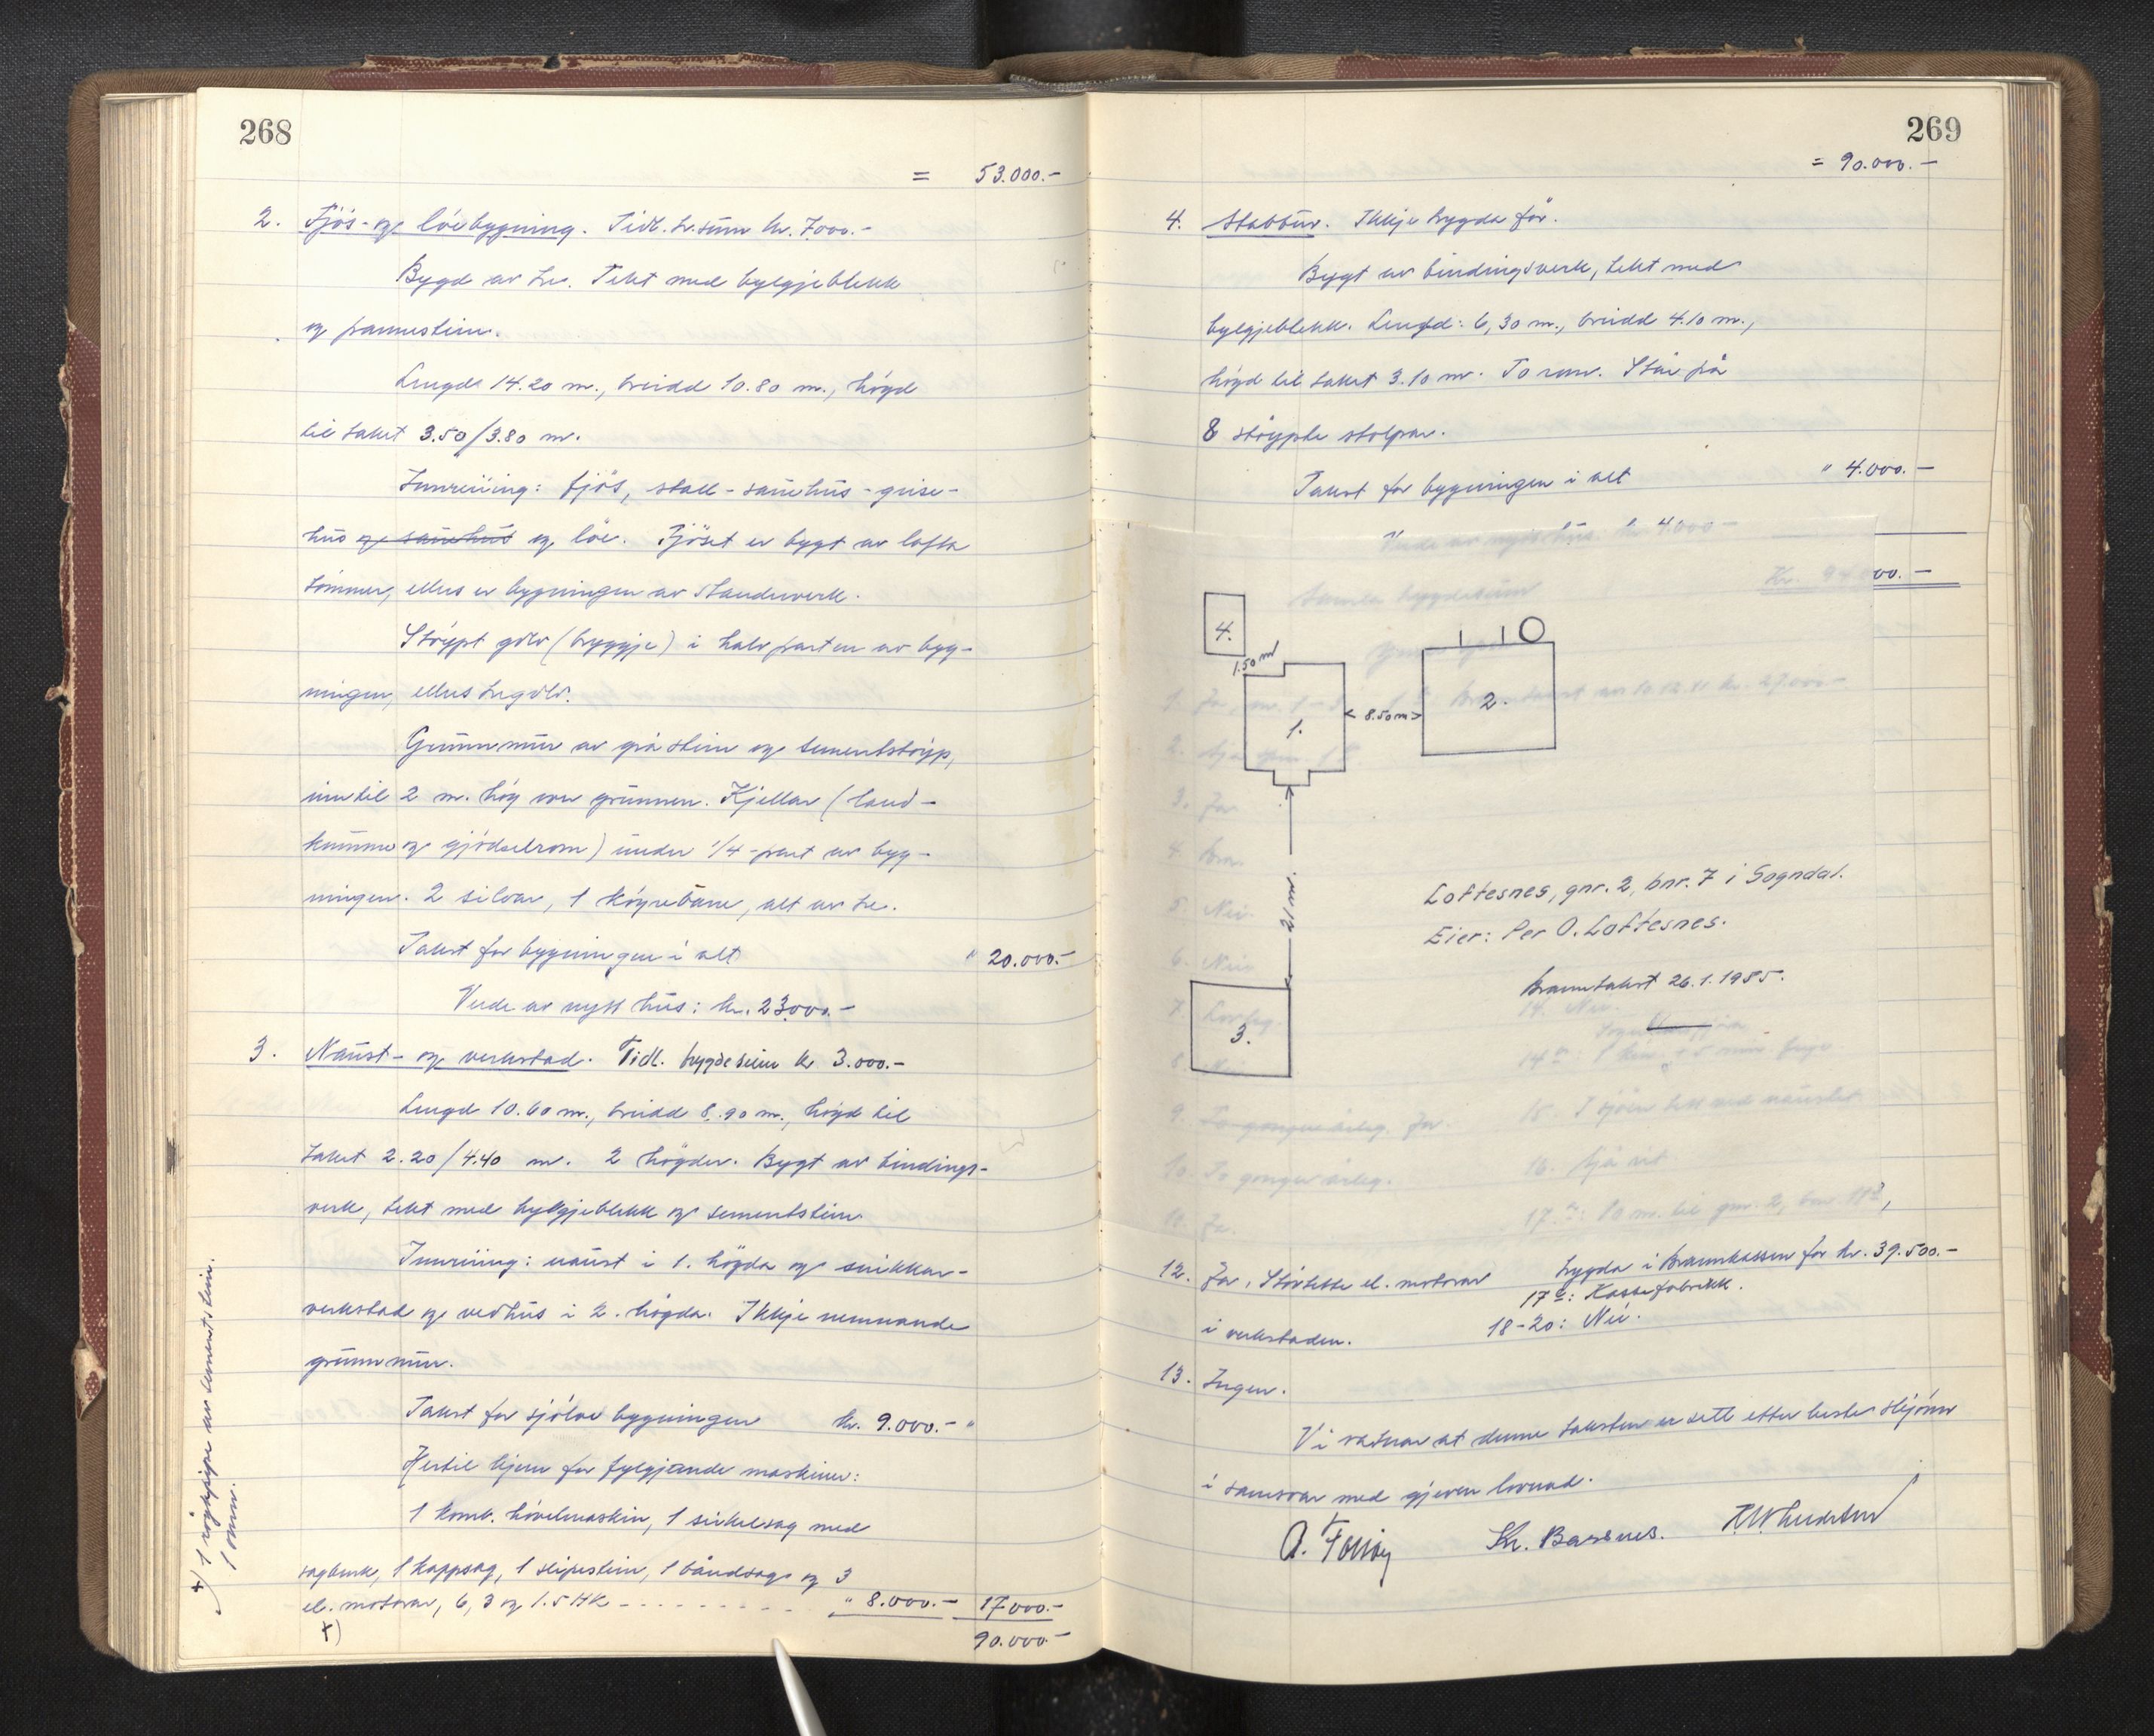 268
= 53.000.-
2. Fjös- og löebygning. Tidl. br.sum kr. 7.000.-
Bygd av tre. Tekt med bylgjeblekk
og pannestein.
Lengde 14.20 m., breidd 10.80 m., högd
til taket 3.50/3.80 m.
Innreiing: fjös, stall - sauehus - grise-
hus og sauehus og löe. Fjöset er bygt av lafta
tömmer, elles er bygningen av standerverk.
Stöypt golv (bryggje) i halvparten av byg-
ningen, elles tregolv.
Grunnmur av gråstein og sementstöyp,
inntil 2 m. høg von grunnen. Kjellar (land-
kumme og gjödselrom) under 1/4-part av byg-
ningen. 2 siloar, 1 köyrebane, alt av tre.
Takst for bygningen i alt " 20.000.-
Verde av nytt hus: kr. 23.000.-
3. Naust- og verkstad. Tidl. brygdesum kr 3.000.-
Lengd 10.60 m., breidd 8.90 m., högd til
taket 2.20/4.40 m. 2 högder. Bygt av bindings-
verk, tekt med bylgjeblekk og sementstein.
Innreiing: naust i 1. högda og snikkar-
verkstad og vedhus i 2. högda. Ikkje nemnande
grunnmur.
Takst for sjölve bygningen kr. 9.000.- "
Hertil kjem for fylgjande maskiner:
1 komb. hövelmaskin, 1 sirkelsag med
sagbenk, 1 kappsag, 1 slipestein, 1 bandsag og 3
el. motorar, 6, 3 og 1.5 HK - - - - - - - - - " 8.000.- 17000.-
+) 90.000.-
+) 1 röykpipe av sementstein.
1 omn.
269
= 90.000.-
4. Stabbur. Ikkje brygda för.
Bygt av bindingsverk, tekt med
bylgjeblekk. Lengd: 6,30 m., breidd 4.10 m.,
högd til taket 3.10 m. To rom. Står på
8 stöypte stolpar.
Takst for bygningen i alt " 4.000.-
Verde av nytt hus: kr 4.000.-
00.-
4.
1.50 m
1.
8.50 m
2.
21 m.
3.
Loftesnes, gnr. 2, bnr. 7 i Sogndal.
Eier: Per O. Loftesnes.
Branntakst 26.1.1955.
12. Ja, Störteste el. motorar
i verkstaden.
13. Ingen.
brygda i Brannkassen for kr. 39.500.-
17 c: Kassefabrikk.
18-20: Nei.
Vi vatnar at denne taksten er sett etter beste skjönn
i samsvar med gjeven lovnad.
Kr. Barsnes.